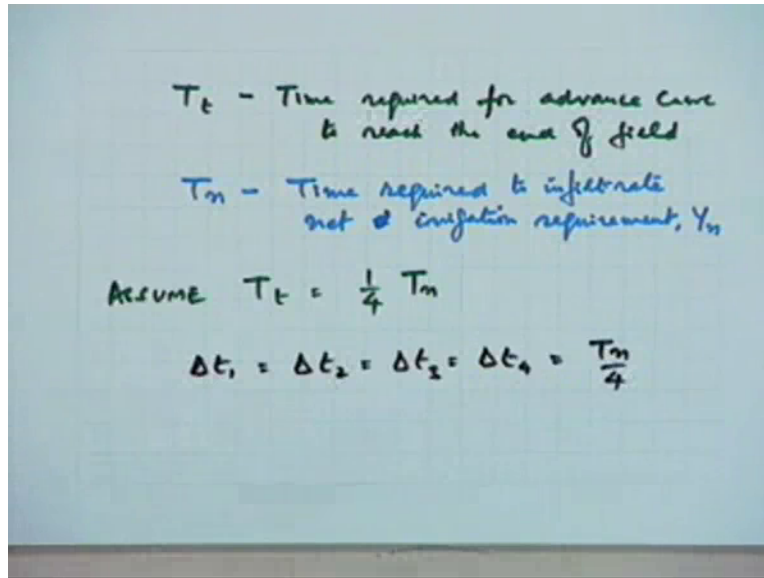 T_t - Time required for advance curve
to reach the end of field
T_n - Time required to infiltrate
net irrigation requirement, Y_n
ASSUME T_t = 1/4 T_n
Δt_1 = Δt_2 = Δt_3 = Δt_4 = T_n/4